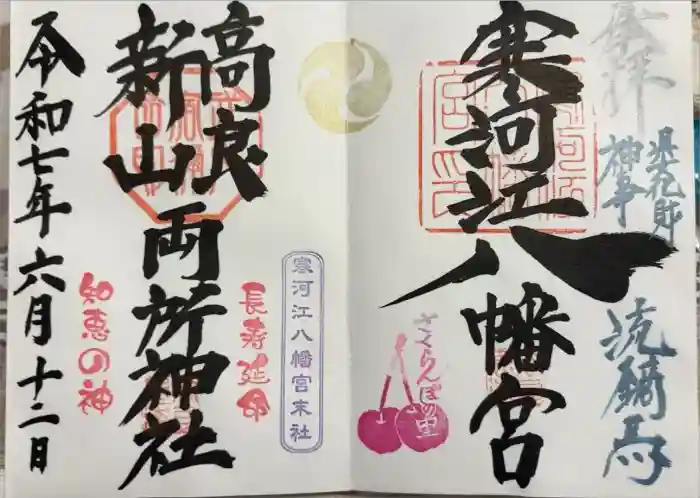 奉拝
県無形文化財
神事
流鏑馬
寒河江八幡宮
さくらんぼの里
寒河江八幡宮末社
長寿延命
高良
新山
両所神社
知恵の神
令和七年六月十二日